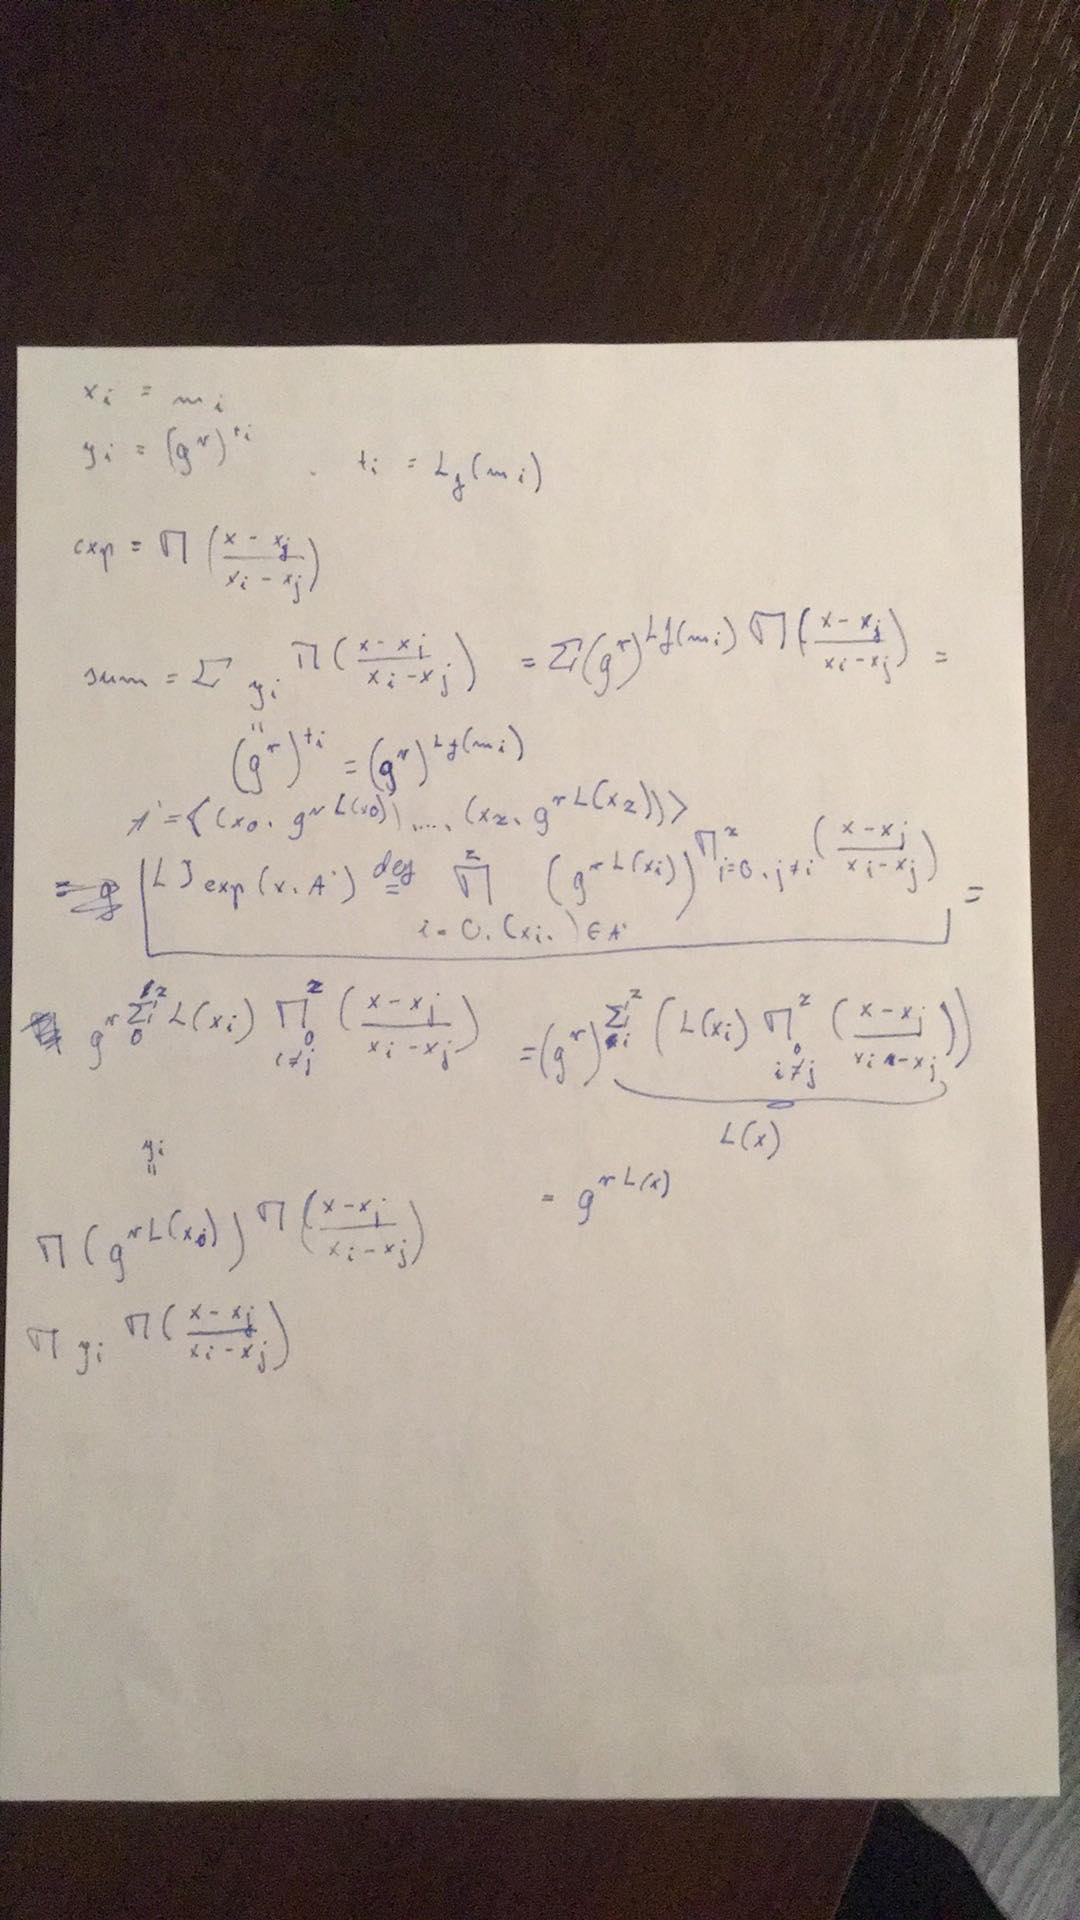 x_i = m_i
y_i = (g^r)^{t_i} . t_i = L_f(m_i)
exp = Π ( (x - x_j) / (x_i - x_j) )
sum = Σ y_i Π ( (x - x_j) / (x_i - x_j) ) = Σ (g^r)^{L_f(m_i)} Π ( (x - x_j) / (x_i - x_j) ) =
"
(g^r)^{t_i} = (g^r)^{L_f(m_i)}
A' = <(x_0, g^{r L(x_0)}), ..., (x_z, g^{r L(x_z)})>
LI exp (x, A') def= Π^z_{i=0, (x_i, ) ∈ A'} (g^{r L(x_i)})^{Π^z_{i=0, j≠i} ( (x - x_j) / (x_i - x_j) )} =
g^{r Σ_0^z L(x_i) Π_0^z_{i≠j} ( (x - x_j) / (x_i - x_j) )} = (g^r)^{Σ_i^z ( L(x_i) Π_0^z_{i≠j} ( (x - x_j) / (x_i - x_j) ) )}
L(x)
= g^{r L(x)}
y_i
"
Π (g^{r L(x_i)})^{Π ( (x - x_j) / (x_i - x_j) )}
Π y_i^{Π ( (x - x_j) / (x_i - x_j) )}